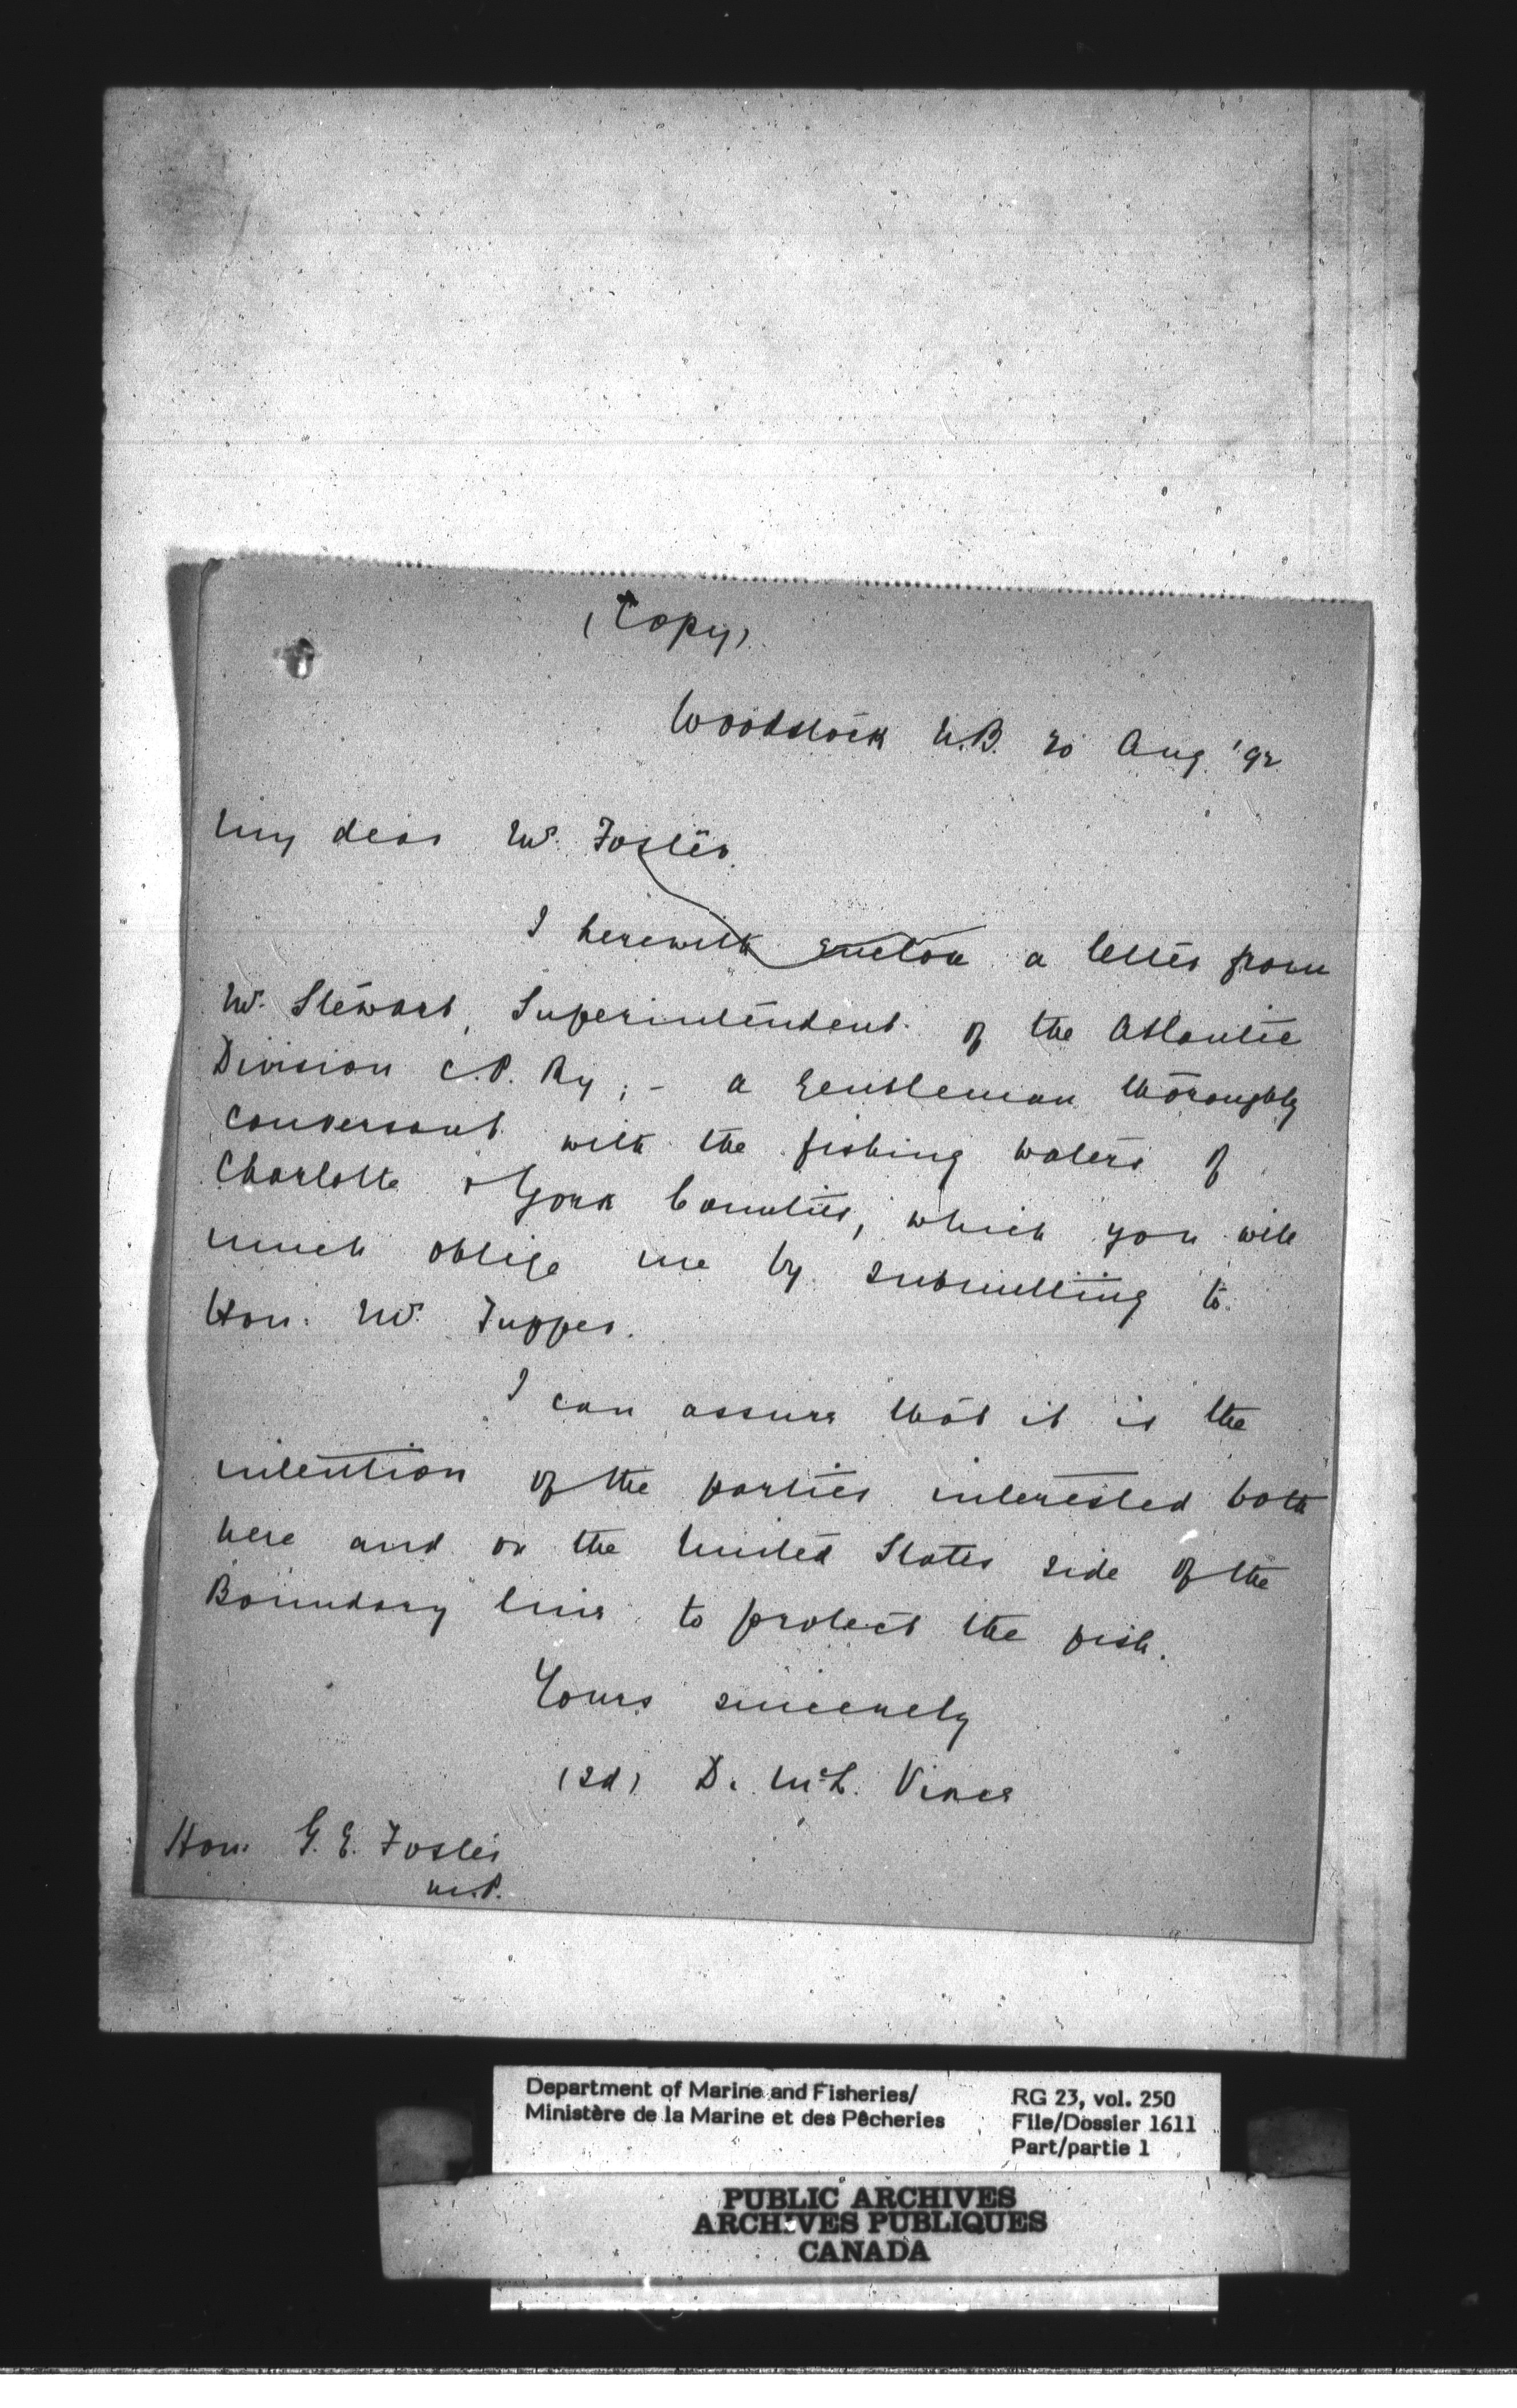 (Copy)
Woodstock N.B. 20 Aug. '92
My dear Mr. Foster.
I herewith enclose a letter from
Mr. Stewart, Superintendent of the Atlantic
Division C.P. Ry; - a gentleman thoroughly
conversant with the fishing waters of
Charlotte & York Counties, which you will
much oblige me by submitting to
Hon. Mr. Tupper.
I can assure that it is the
intention of the parties interested both
here and on the United States side of the
Boundary line to protect the fish.
Yours sincerely
(sd) D. McL. Vince
Hon. G. E. Foster
M.P.
Department of Marine and Fisheries/
Ministère de la Marine et des Pêcheries
RG 23, vol. 250
File/Dossier 1611
Part/partie 1
PUBLIC ARCHIVES
ARCHIVES PUBLIQUES
CANADA